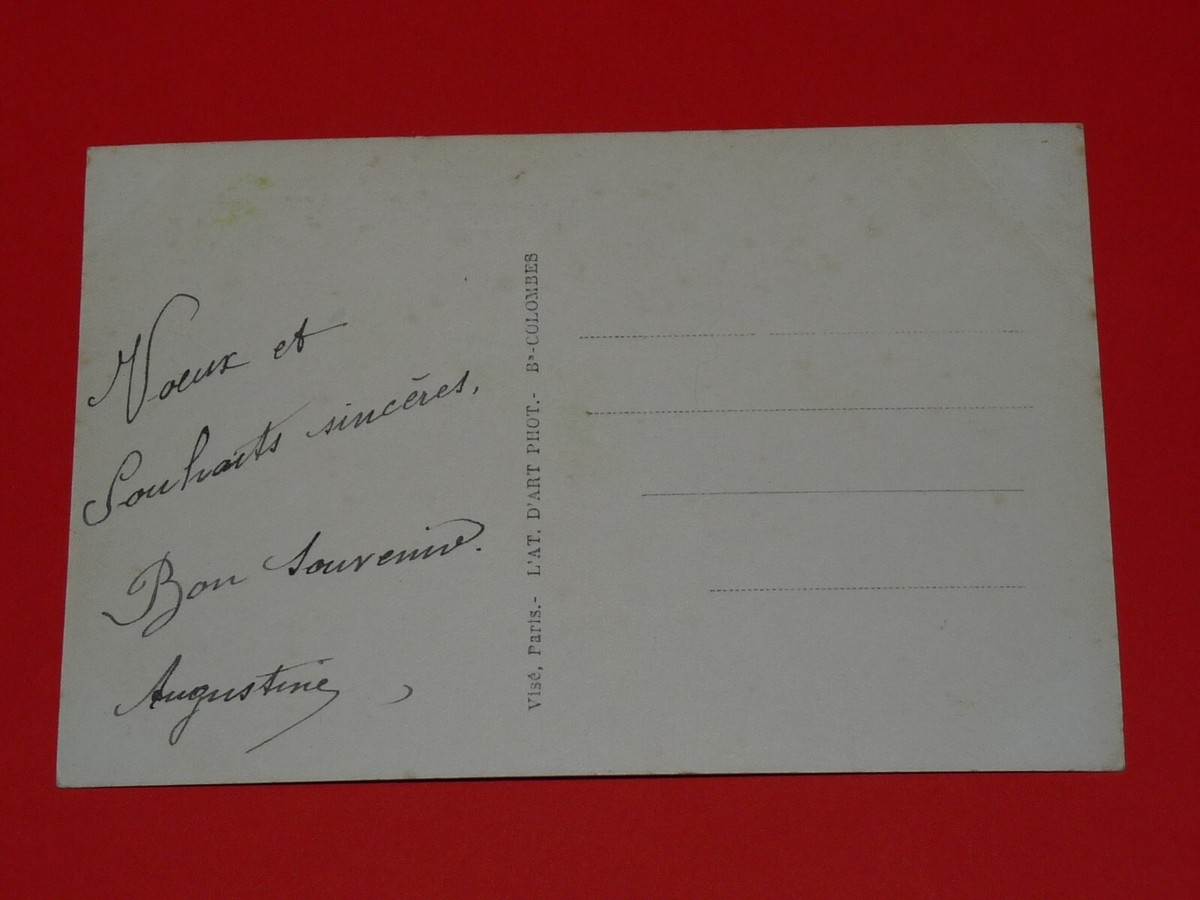 Voeux et
Souhaits sincères.
Bon Souvenir.
Augustine
Visé, Paris.- L'AT. D'ART PHOT.- Bs-COLOMBES